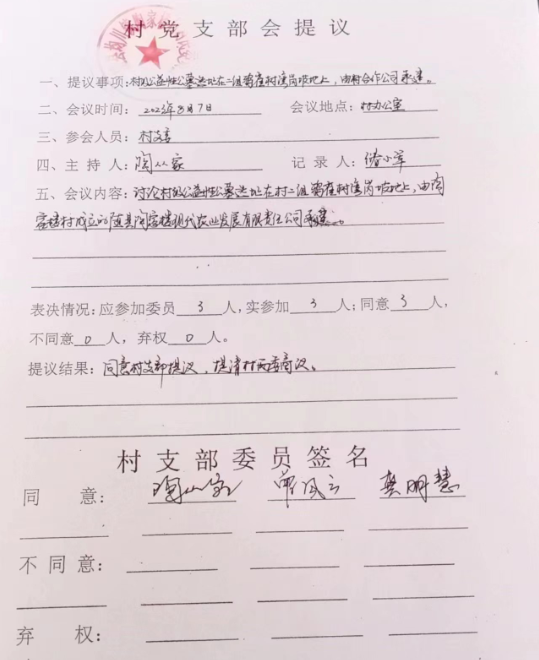 村党支部会提议
一、提议事项:村级公益性公墓选址在二组 树湾岗坡地上,由村合作公司承建。
二、会议时间: 2023年8月7日 会议地点: 村办公室
三、参会人员: 村支委
四、主 持 人: 陶从家 记 录 人: 小军
五、会议内容: 讨论村级公益性公墓选址在村二组 树湾岗坡地上,由陶
家楼村成立的随县陶家楼现代农业发展有限责任公司承建。
表决情况:应参加委员 3 人,实参加 3 人;同意 3 人,
不同意 0 人,弃权 0 人。
提议结果: 同意村支部提议,提请村两委商议。
村支部委员签名
同 意: 陶从家 风云 龚明慧
不 同 意:
弃 权: